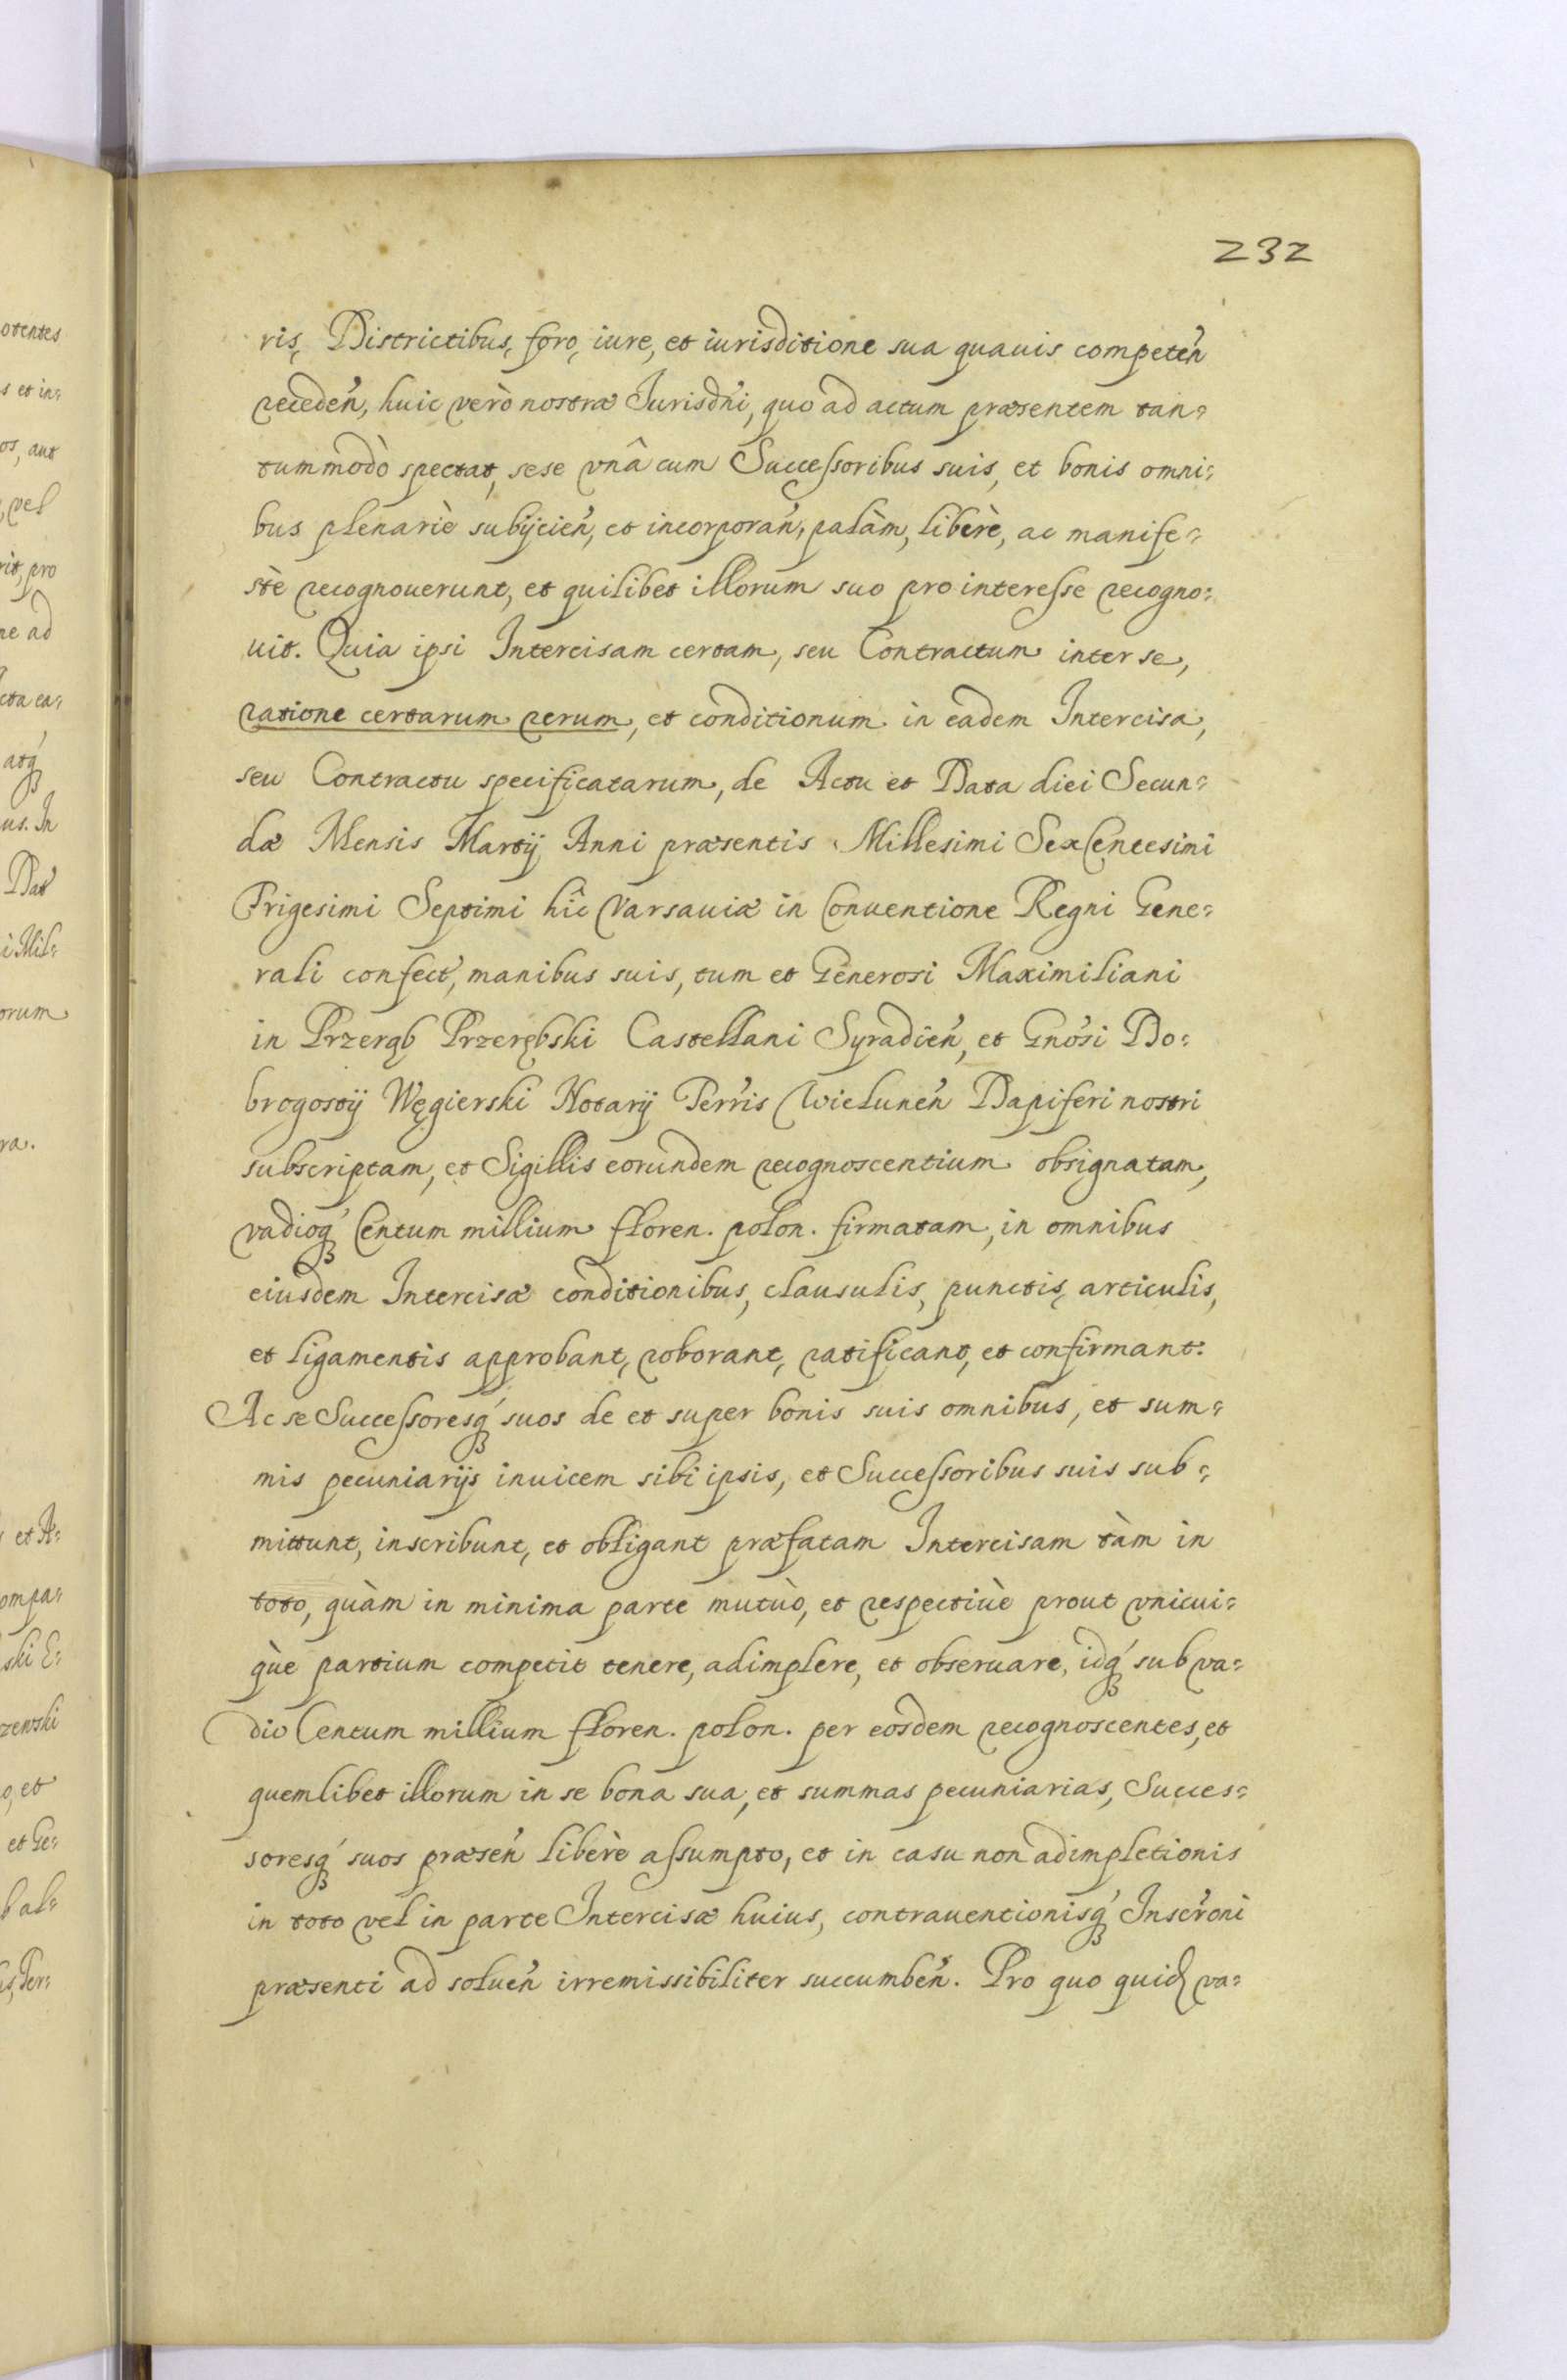 232
ris, Districtibus, foro, iure, et iurisditione sua quauis competeń
recedeń, huic verò nostræ Jurisdńi, quo ad actum præsentem tan=
tummodò spectat, sese vnâ cum Successoribus suis, et bonis omni=
bus plenariè subijcień, et incorporań, palàm, liberè, ac manife=
stè recognouerunt, et quilibet illorum suo pro interesse recogno=
uit. Quia ipsi Intercisam certam, seu Contractum inter se,
ratione certarum rerum, et conditionum in eadem Intercisa,
seu Contractu specificatarum, de Actu et Data diei Secun=
dæ Mensis Martij Anni præsentis Millesimi SexCentesimi
Trigesimi Septimi hîc Varsauiæ in Conuentione Regni Gene=
rali confect, manibus suis, tum et Generosi Maximiliani
in Przerąb Przerębski Castellani Syradień, et Gnósi Do=
brogostij Węgierski Notarij Terŕis Wieluneń Dapiferi nostri
subscriptam, et Sigillis eorundem recognoscentium obsignatam,
vadioq́ Centum millium floren. polon. firmatam, in omnibus
eiusdem Intercisæ conditionibus, clausulis, punctis, articulis,
et ligamentis approbant, roborant, ratificant, et confirmant.
Ac se Successoresq́ suos de et super bonis suis omnibus, et sum=
mis pecuniarijs inuicem sibi ipsis, et Successoribus suis sub=
mittunt, inscribunt, et obligant præfatam Intercisam tàm in
toto, quàm in minima parte mutuò, et respectiuè prout vnicui=
què partium competit tenere, adimplere, et obseruare, idq́ sub va=
dio Centum millium floren. polon. per eosdem recognoscentes, et
quemlibet illorum in se bona sua, et summas pecuniarias, Succes=
soresq́ suos præseń liberè assumpto, et in casu non adimpletionis
in toto vel in parte Intercisæ huius, contrauentionisq́ Inscŕoni
præsenti ad solueń irremissibiliter succumbeń. Pro quo quid va=
otentes
s et in=
os, aut
vel
rit, pro
ne ad
cta ea=
atq́
us. In
Dat
i Mil=
orum
ra.
et A=
ompa=
ski E=
zewski
o, et
et Ge=
b al=
s, Ter=